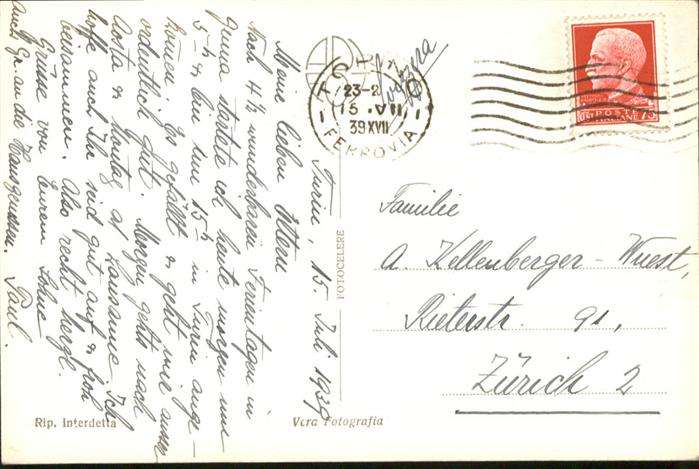 Turin, 15. Juli 1939
Meine lieben Eltern
Nach 4½ wunderbaren Ferientagen in
startete ich heute morgen um
5 h & bin nun 15 h in Turin ange-
kommen. Es gefällt & geht mir ausser-
ordentlich gut. Morgen geht's nach
Aosta & Montag Lausanne. Ich
hoffe auch Ihr seid gut auf & froh
beisammen. Also recht herzl.
Grüsse von Eurem Sohne
Paul.
auch Gr. an die Hausgenossen.
Svizzera
TORINO
23-24
15 VII
39 XVII
FERROVIA
POSTE
ITALIANE
75
FOTOCELERE
Familie
A. Kellenberger-Wuest,
Rieterstr. 91,
Zürich 2
Rip. Interdetta
Vera Fotografia